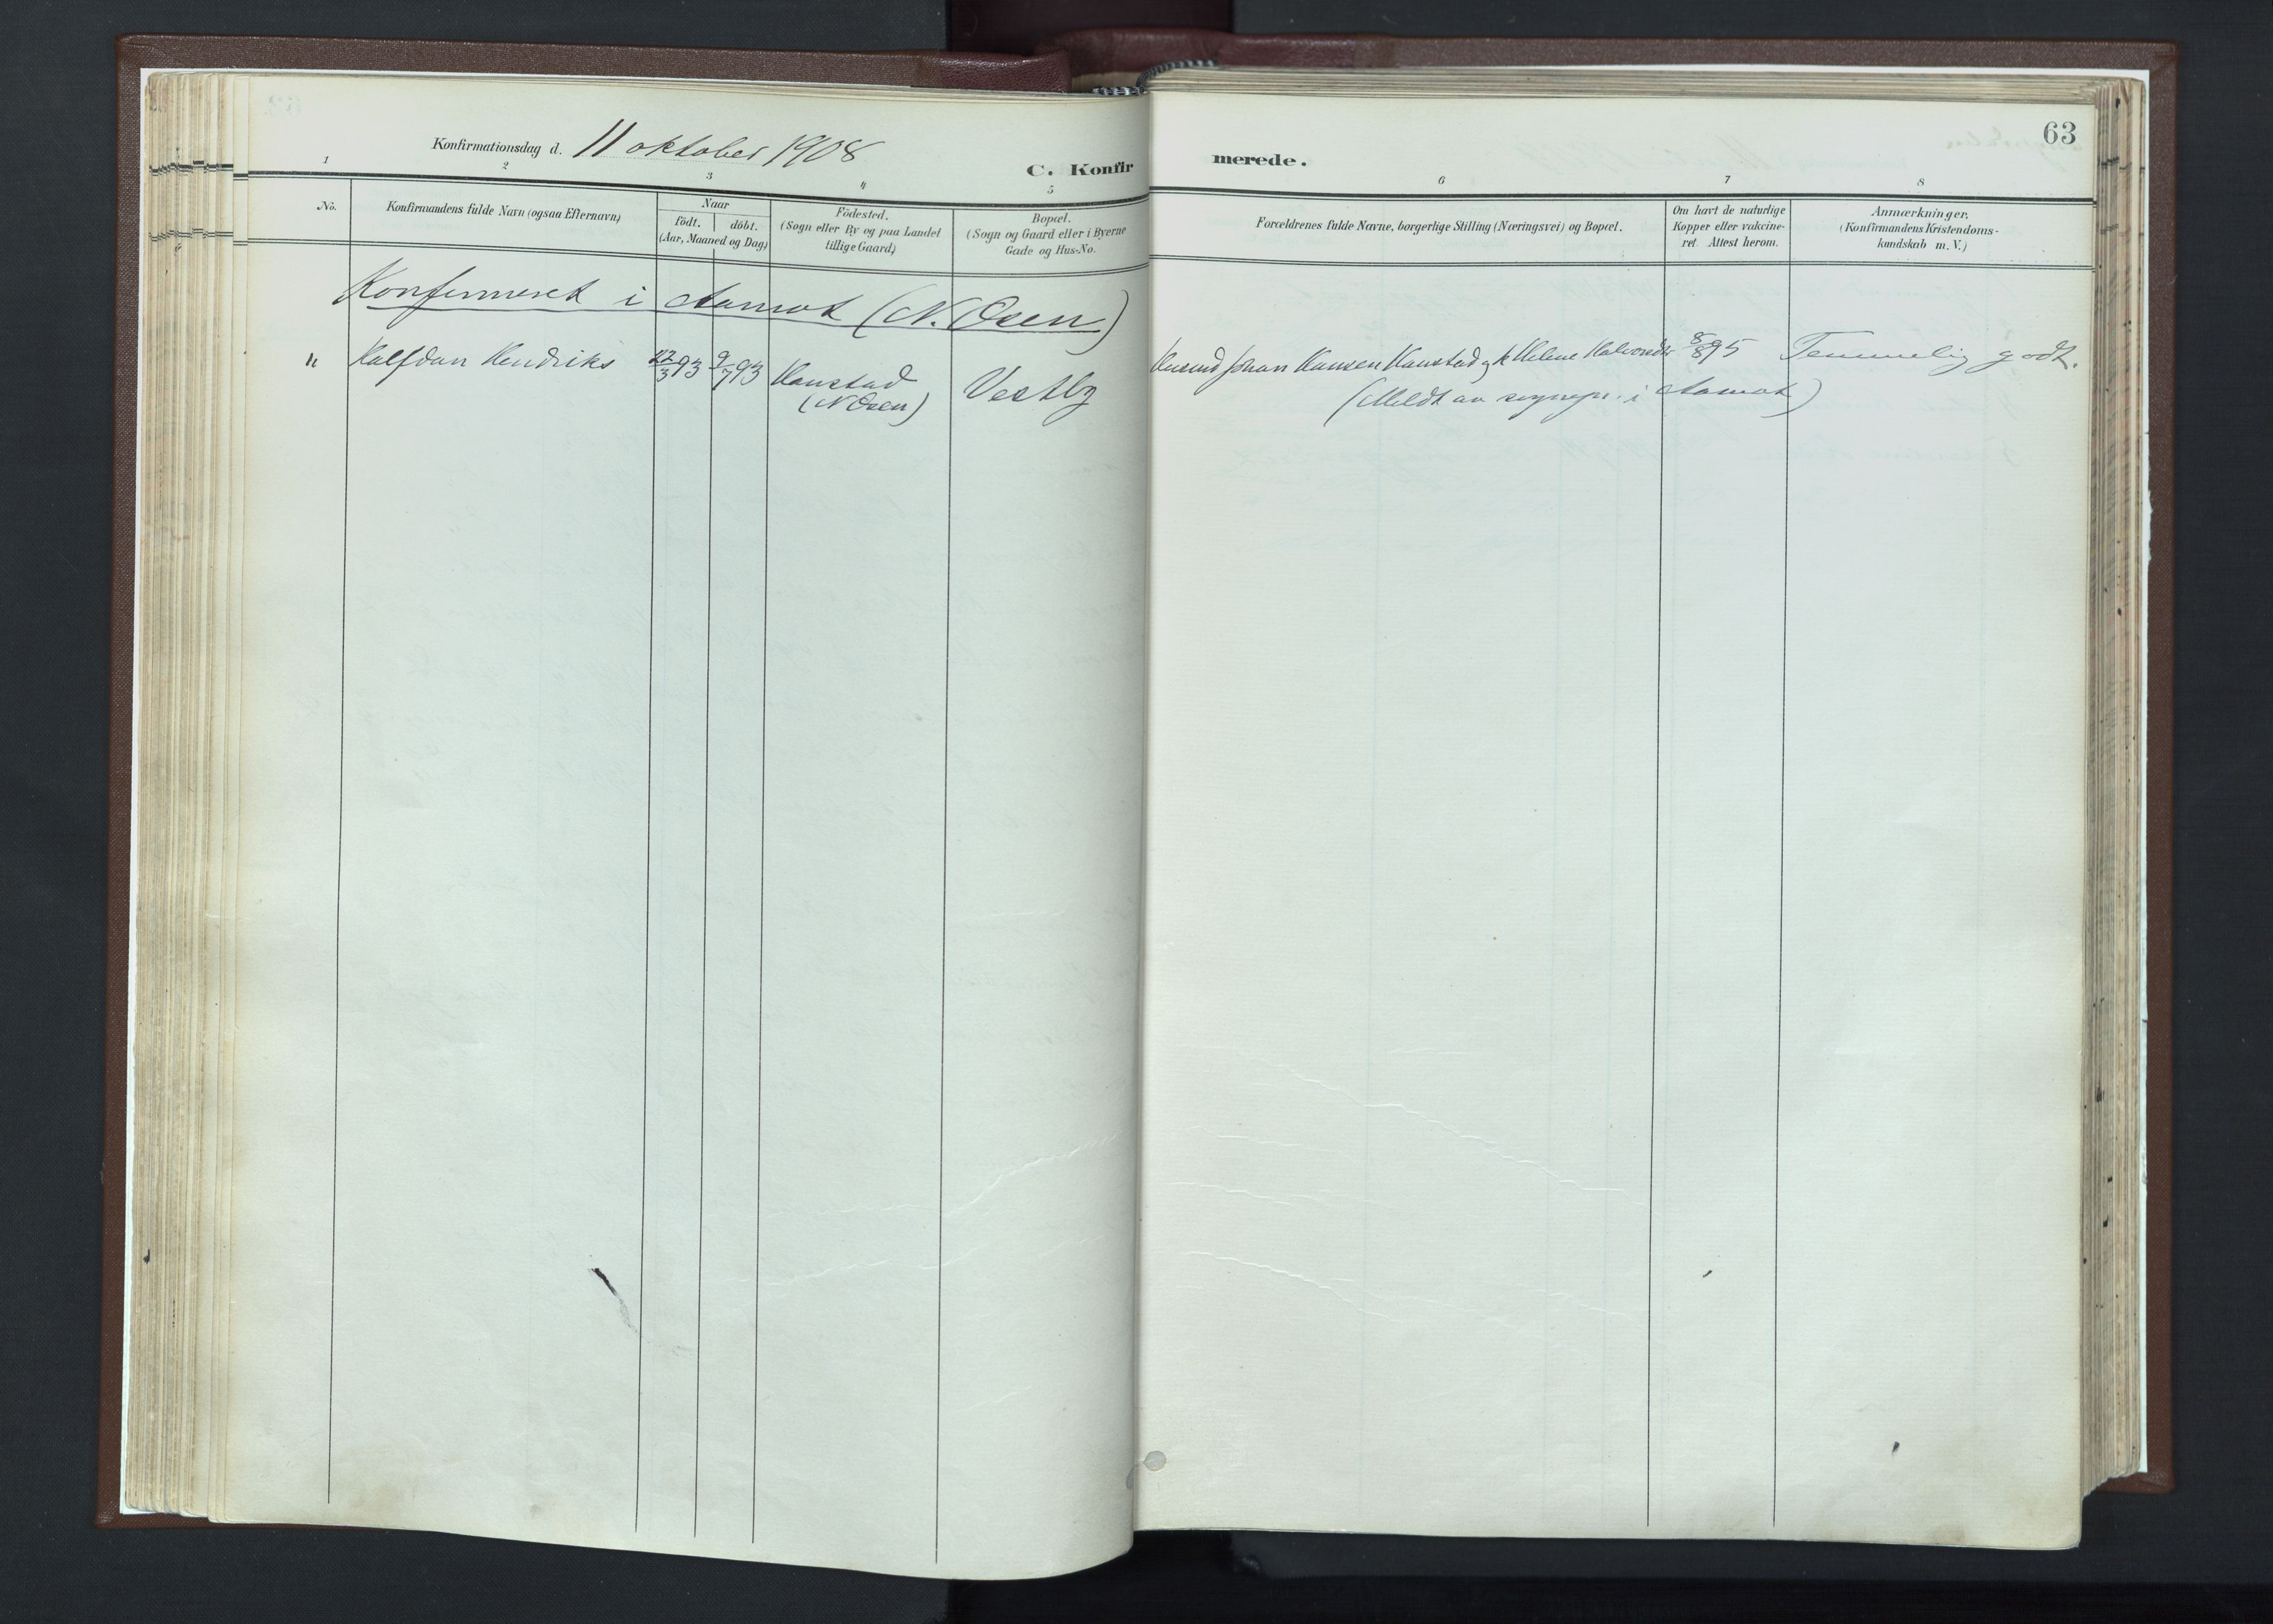 63
Konfirmationsdag d. 11 oktober 1908
C. Konfirmerede.
1 2 3 4 5 6 7 8
No.
Konfirmandens fulde Navn (ogsaa Efternavn)
Naar
födt. döbt.
(Aar, Maaned og Dag)
Födested.
(Sogn eller By og paa Landet
tillige Gaard)
Bopæl.
(Sogn og Gaard eller i Byerne
Gade og Hus-No.
Forældrenes fulde Navne, borgerlige Stilling (Næringsvei) og Bopæl.
Om havt de naturlige
Kopper eller vakcine-
ret. Attest herom.
Anmærkninger.
(Konfirmandens Kristendoms-
kundskab m. V.)
Konfirmeret i Aamot (N. Osen)
Halfdan Hendriks 22/3 93 9/7 93 Hanstad Vestby Johan Hansen Hanstad og k Helene Halvorsdtr 8/8 95 Temmelig godt.
(N Osen) (Meldt av sognepr. i Aamot)